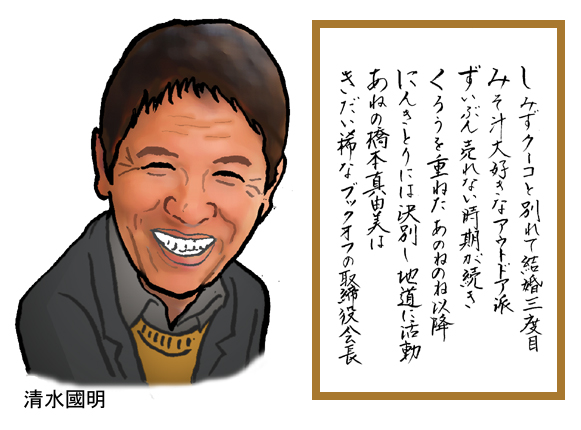 しみずクーコと別れて結婚三度目
みそ汁大好きなアウトドア派
ずいぶん売れない時期が続き
くろうを重ねた あのねのね以降
にんきとりには決別し地道に活動
あねの橋本真由美は
きだい稀なブックオフの取締役会長
清水國明